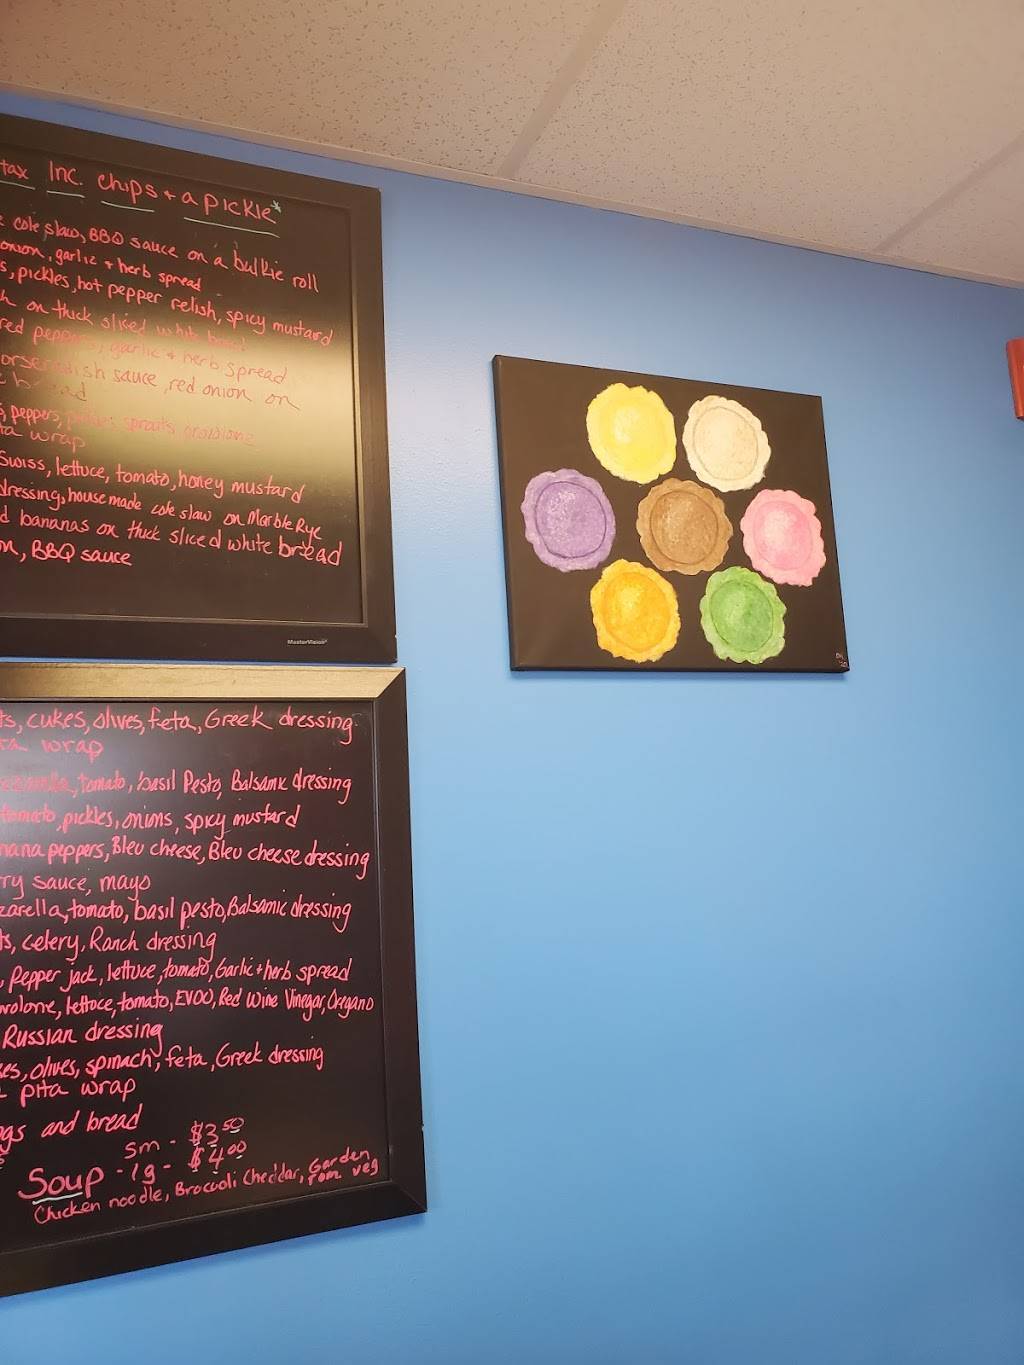 tax Inc. chips + a pickle*
cole slaw, BBQ sauce on a bulkie roll
onion, garlic + herb spread
s, pickles, hot pepper relish, spicy mustard
h on thick sliced white bread
red peppers, garlic + herb spread
orseradish sauce, red onion on
bread
s, peppers, pickles, sprouts, provolone
ta wrap
Swiss, lettuce, tomato, honey mustard
dressing, house made cole slaw on Marble Rye
d bananas on thick sliced white bread
on, BBQ sauce
MasterVision
ts, cukes, olives, feta, Greek dressing
ta wrap
zzarella, tomato, basil Pesto, Balsamic dressing
tomato, pickles, onions, spicy mustard
nana peppers, Bleu cheese, Bleu cheese dressing
rry sauce, mayo
zarella, tomato, basil pesto, Balsamic dressing
ts, celery, Ranch dressing
, Pepper jack, lettuce, tomato, Garlic + herb spread
ovolone, lettuce, tomato, EVOO, Red Wine Vinegar, Oregano
Russian dressing
es, olives, spinach, feta, Greek dressing
pita wrap
gs and bread
sm - $3.50
Soup - lg - $4.00
Chicken noodle, Broccoli Cheddar, Garden
Tom veg